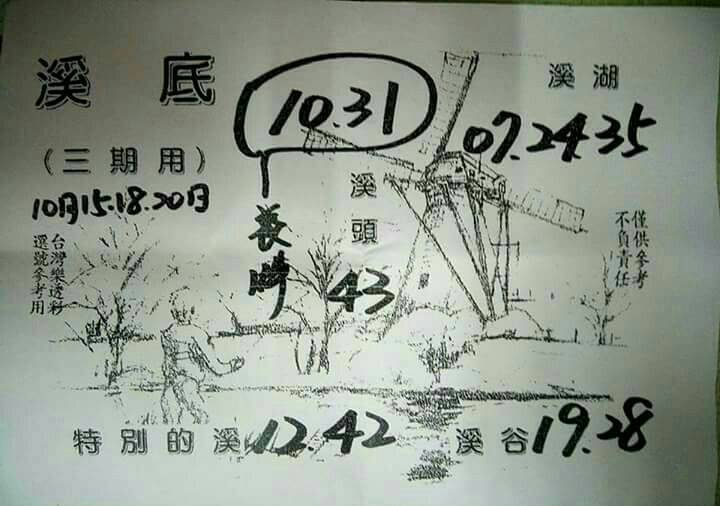 溪底
10.31
溪湖
07.24.35
(三期用)
10月15.18.20日
溪頭
43
僅供參考
不負責任
台灣樂透彩
選號參考用
特別的溪 12.42
溪谷 19.28